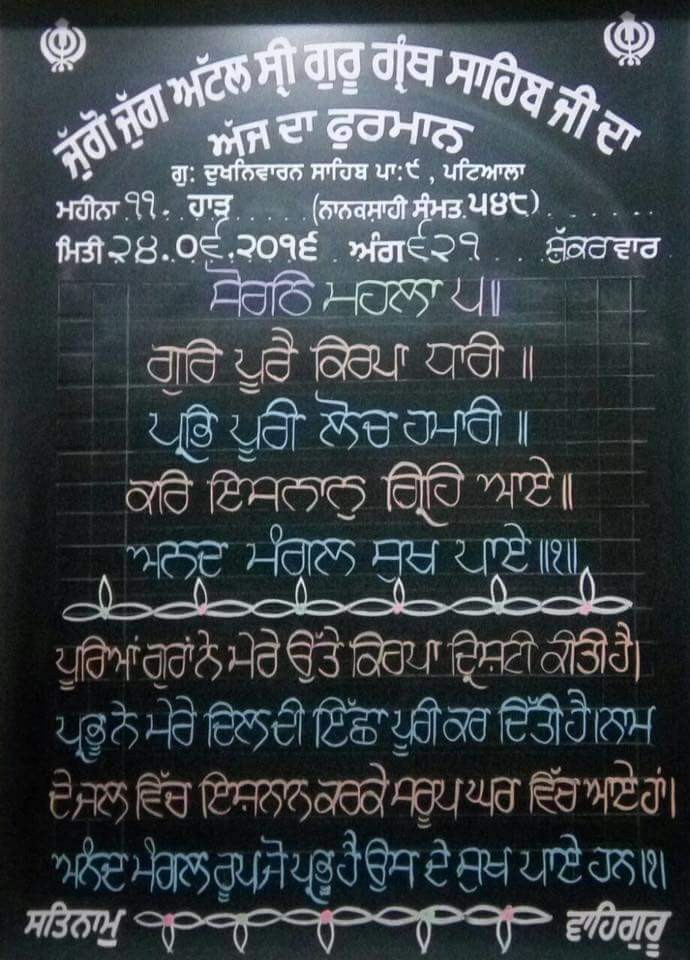 ਜੁੱਗੋ ਜੁੱਗ ਅਟੱਲ ਸ੍ਰੀ ਗੁਰੂ ਗ੍ਰੰਥ ਸਾਹਿਬ ਜੀ ਦਾ
ਅੱਜ ਦਾ ਫੁਰਮਾਨ
ਗੁ: ਦੁਖਨਿਵਾਰਨ ਸਾਹਿਬ ਪਾ:੯ , ਪਟਿਆਲਾ
ਮਹੀਨਾ ੧੧. ਹਾੜ ..... (ਨਾਨਕਸ਼ਾਹੀ ਸੰਮਤ.੫੪੮) .......
ਮਿਤੀ ੨੪.੦੬.੨੦੧੬ . ਅੰਗ ੬੨੧ ਸ਼ੁੱਕਰਵਾਰ .
ਸੋਰਠਿ ਮਹਲਾ ੫॥
ਗੁਰਿ ਪੂਰੈ ਕਿਰਪਾ ਧਾਰੀ ॥
ਪ੍ਰਭਿ ਪੂਰੀ ਲੋਚ ਹਮਾਰੀ ॥
ਕਰਿ ਇਸਨਾਨੁ ਗ੍ਰਿਹਿ ਆਏ॥
ਅਨਦ ਮੰਗਲ ਸੁਖ ਪਾਏ ॥੧॥
ਪੂਰਿਆਂ ਗੁਰਾਂ ਨੇ ਮੇਰੇ ਉੱਤੇ ਕਿਰਪਾ ਦ੍ਰਿਸ਼ਟੀ ਕੀਤੀ ਹੈ।
ਪ੍ਰਭੂ ਨੇ ਮੇਰੇ ਦਿਲ ਦੀ ਇੱਛਾ ਪੂਰੀ ਕਰ ਦਿੱਤੀ ਹੈ।ਨਾਮ
ਦੇ ਜਲ ਵਿੱਚ ਇਸ਼ਨਾਨ ਕਰਕੇ ਸਰੂਪ ਘਰ ਵਿੱਚ ਆਏ ਹਾਂ।
ਅਨੰਦ ਮੰਗਲ ਰੂਪ ਜੋ ਪ੍ਰਭੂ ਹੈ ਉਸ ਦੇ ਸੁਖ ਪਾਏ ਹਨ।੧।
ਸਤਿਨਾਮੁ ਵਾਹਿਗੁਰੂ